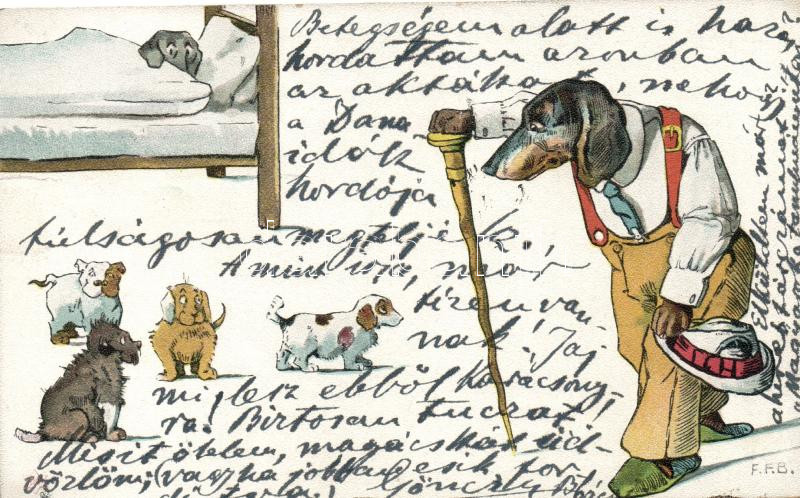 Betegségem alatt is haza
hordattam azonban
az aktákat, nehogy
a Dana
idák
hordója
túlságosan megteljék.
Amint írja, már
tizen van-
nak! Jaj
mi lesz ebből karácsony-
ra! Birtosan tuczat!
Mesit ölelem, magácskát üd-
vözlöm; (vagy ha jobban esik for-
dítva!
Gönczy
Elküldtem már
a
F.F.B.